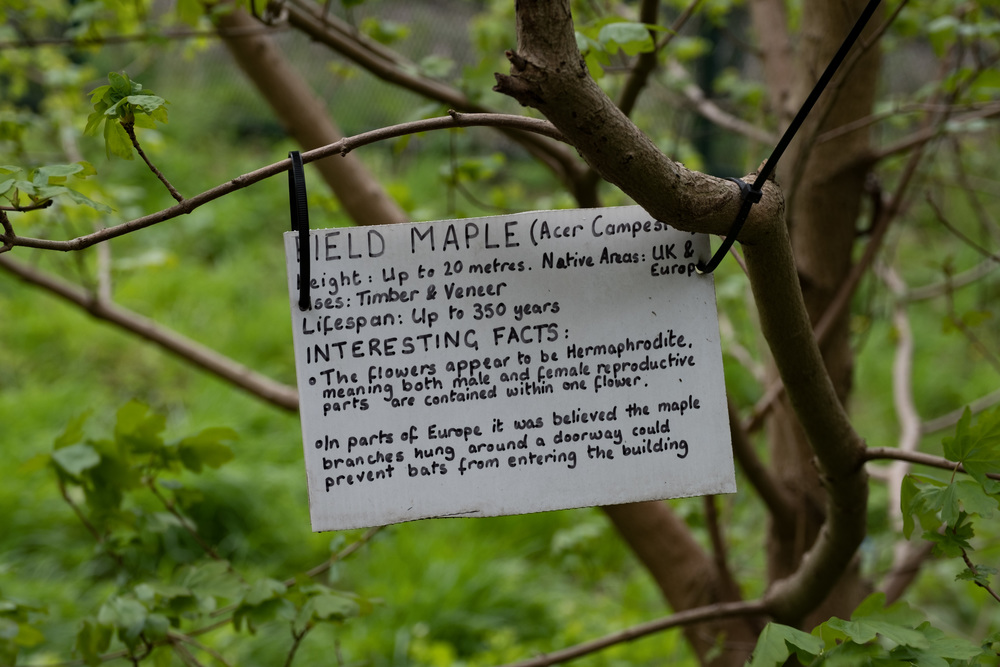 FIELD MAPLE (Acer Campest
Height: Up to 20 metres. Native Areas: UK &
Europ
Uses: Timber & Veneer
Lifespan: Up to 350 years
INTERESTING FACTS:
• The flowers appear to be Hermaphrodite,
meaning both male and female reproductive
parts are contained within one flower.
•In parts of Europe it was believed the maple
branches hung around a doorway could
prevent bats from entering the building